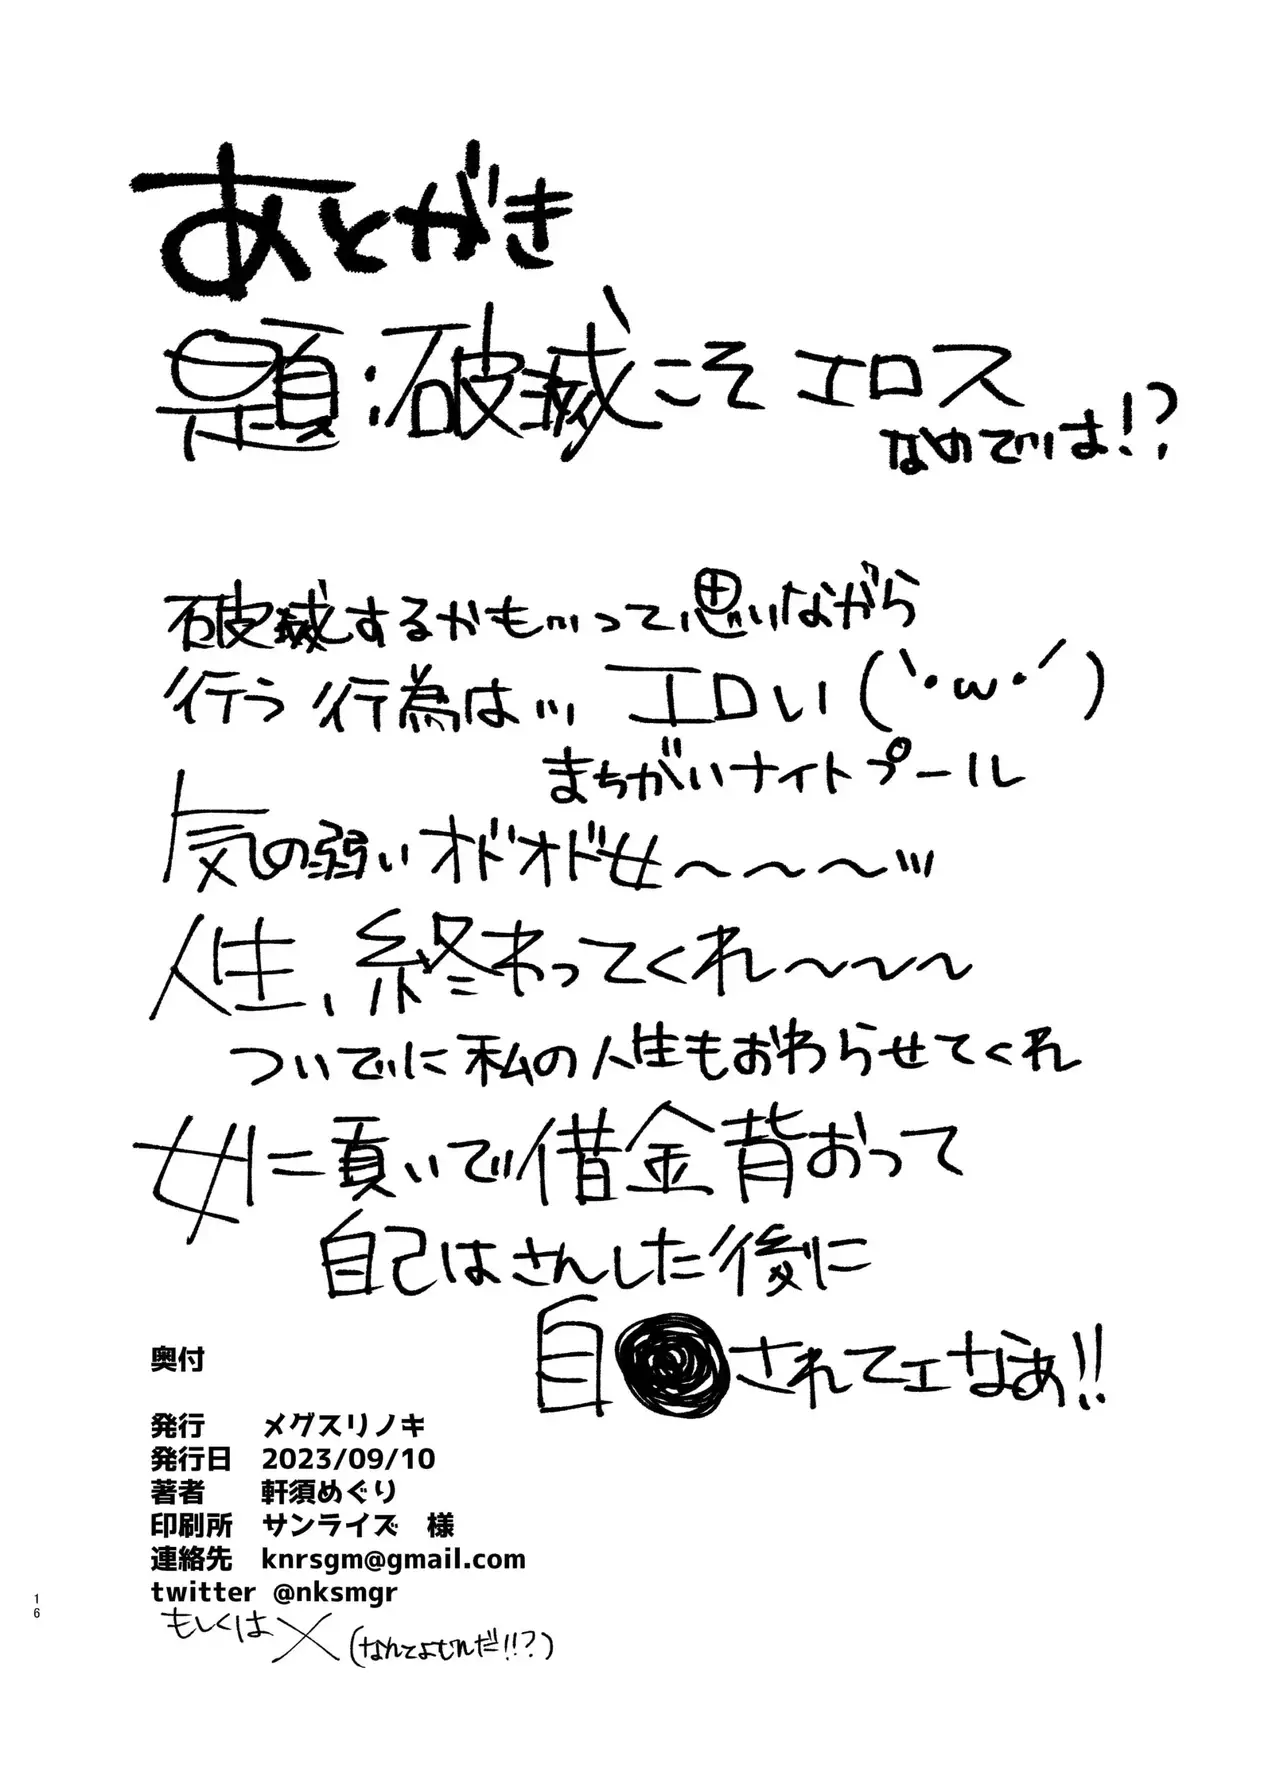 あとがき
題:破滅こそエロス
なのでは!?
破滅するかも…って思いながら
行う行為は… エロい(`・ω・´)
まちがいナイトプール
気の弱いオドオド女〜〜〜…
人生、終わってくれ〜〜〜
ついでに私の人生もおわらせてくれ
女に貢いで借金背おって
自己はさんした後に
自●されてェなあ!!
奥付
発行 メグスリノキ
発行日 2023/09/10
著者 軒須めぐり
印刷所 サンライズ 様
連絡先 knrsgm@gmail.com
twitter @nksmgr
もしくはX(なんてよむんだ!!?)
16